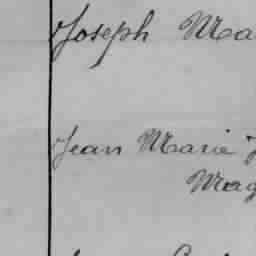 Joseph Ma
Jean Marie J
Mag